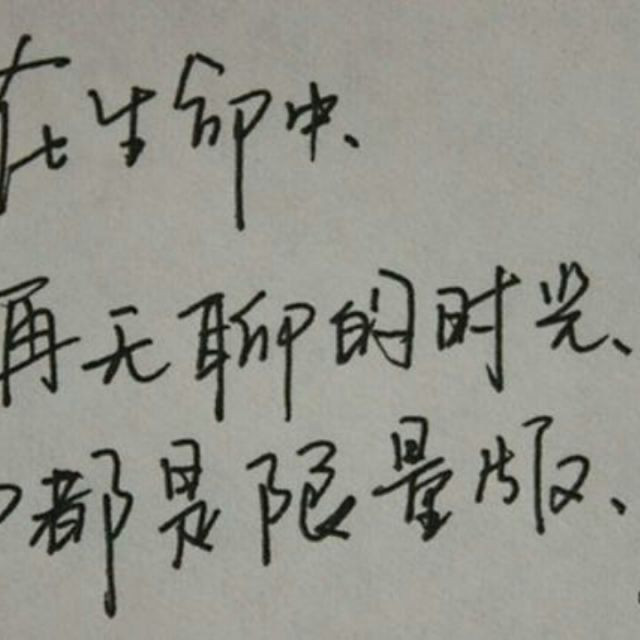 在生命中、
再无聊的时光、
都是限量版、